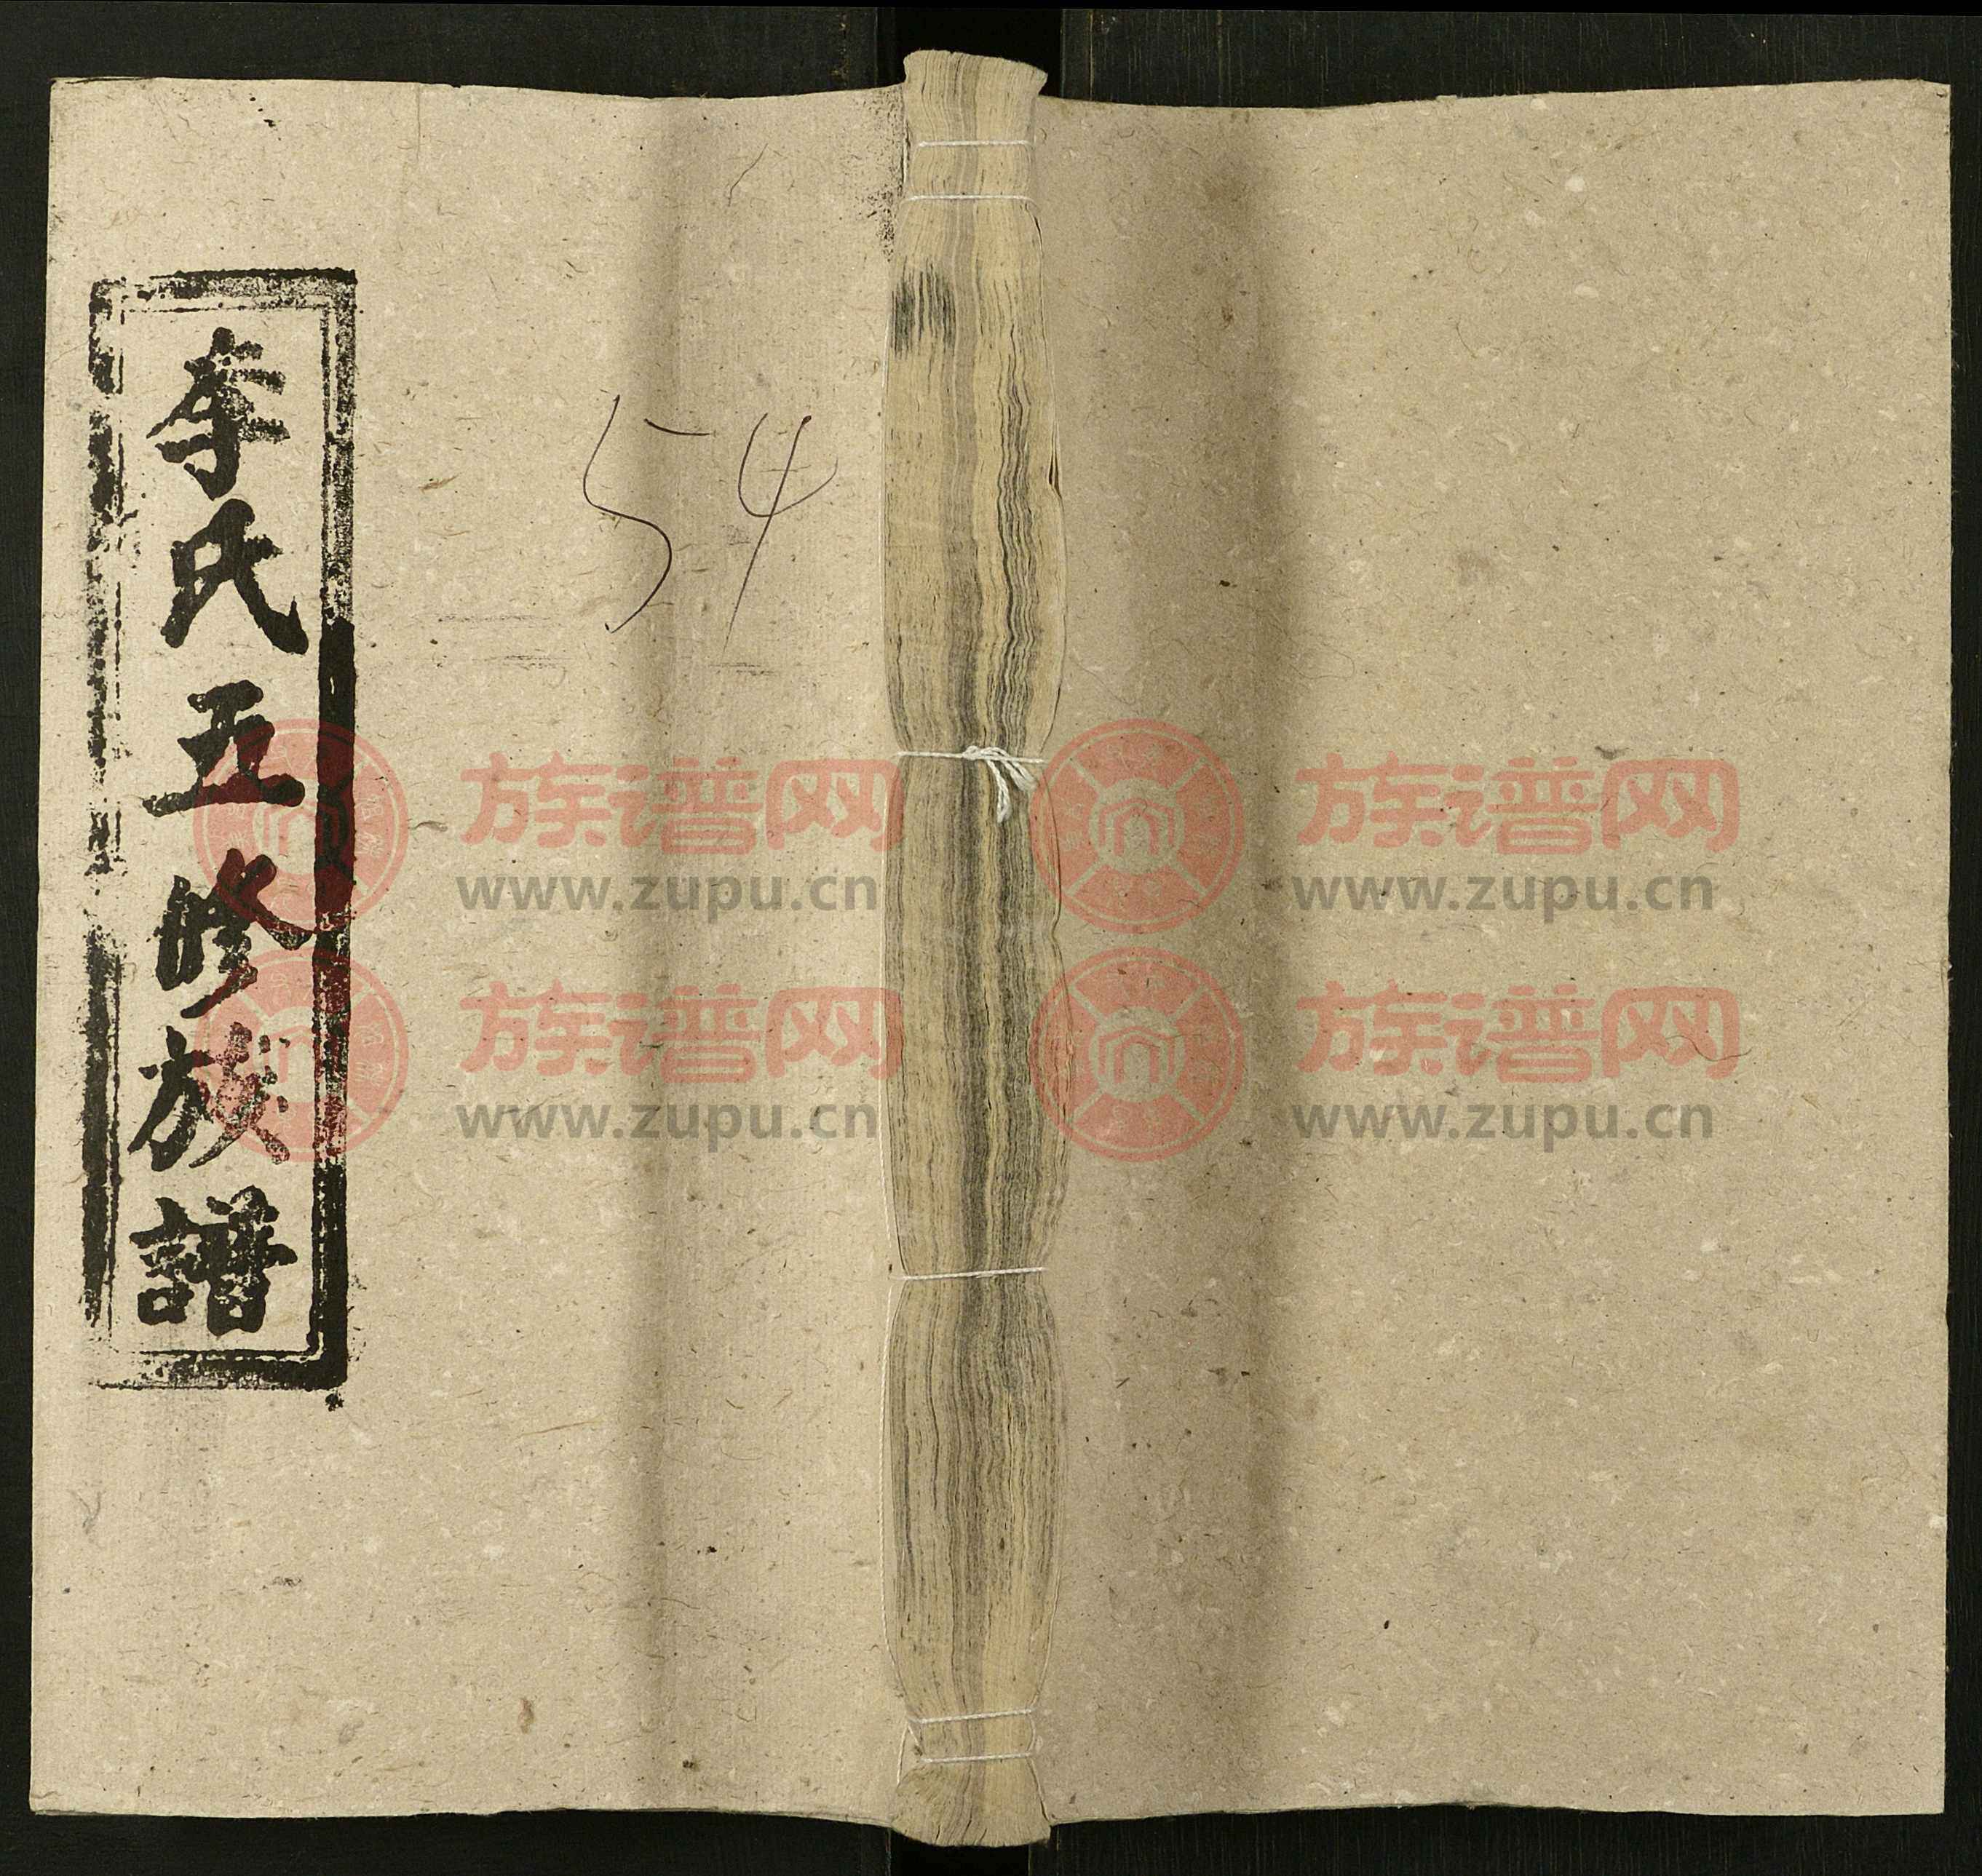 李氏五修族譜
54
族谱网
www.zupu.cn
族谱网
www.zupu.cn
族谱网
www.zupu.cn
族谱网
www.zupu.cn